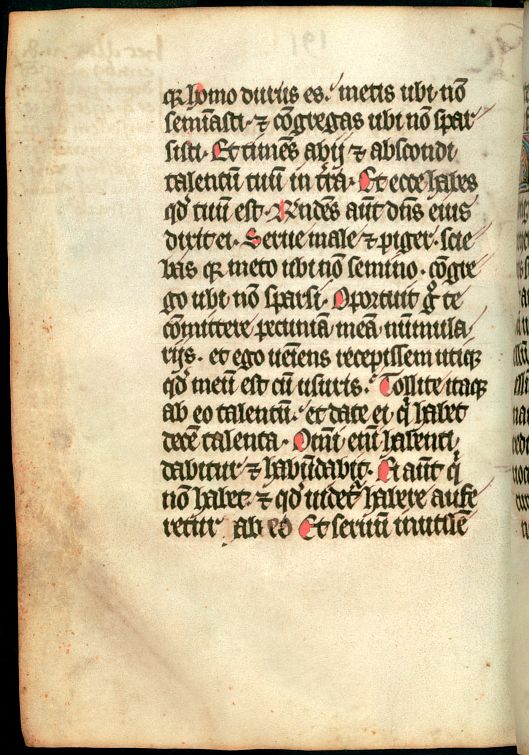 qꝛ homo durus es. metis ubi nō
semīasti. ⁊ cōgregas ubi nō spar
sisti. Et timēs abij ⁊ abscondi
talentū tuū in tr̄a. Et ecce habes
qd̄ tuū est. Rn̄dēs aūt dn̄s eius
dixit ei. Serue male ⁊ piger. scie
bas qꝛ meto ubi nō semino. ⁊gre
go ubi nō sparsi. Oportuit gͦ te
cōmittere pecuniā meā nūmula
rijs. et ego ueīens recepissem utiqꝫ
qd̄ meū est cū usuris. Tollite itaqꝫ
ab eo talentū. et date ei q̇ habet
decē talenta. Omī enī habenti
dabitur ⁊ habūdabit. Ei aūt q̇
nō habet. ⁊ qd̄ uidet᷑ habere aufe
retur ab eo Et seruū inutilē